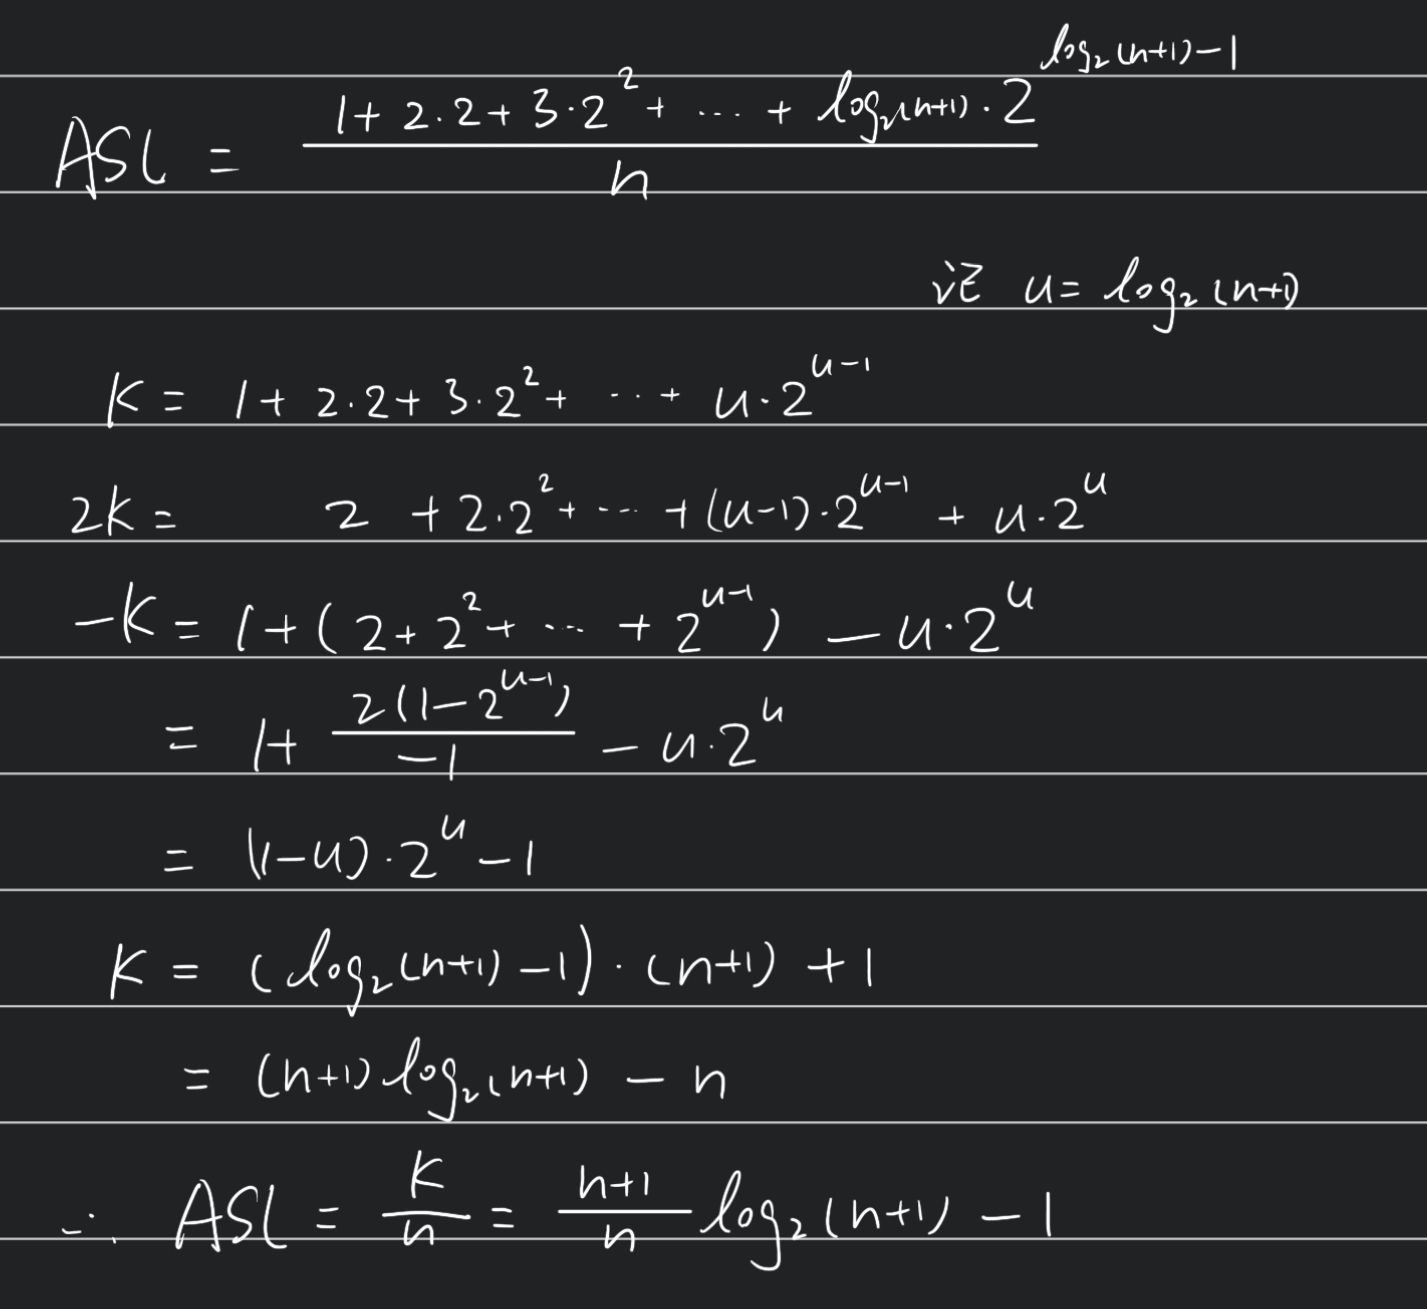 ASL = (1 + 2·2 + 3·2² + ··· + log₂(n+1)·2^(log₂(n+1)−1)) / n
记 u = log₂(n+1)
K = 1 + 2·2 + 3·2² + ··· + u·2^(u−1)
2K = 2 + 2·2² + ··· + (u−1)·2^(u−1) + u·2^u
−K = 1 + (2 + 2² + ··· + 2^(u−1)) − u·2^u
= 1 + 2(1−2^(u−1)) / −1 − u·2^u
= (1−u)·2^u − 1
K = (log₂(n+1) − 1)·(n+1) + 1
= (n+1) log₂(n+1) − n
∴ ASL = K/n = (n+1)/n log₂(n+1) − 1